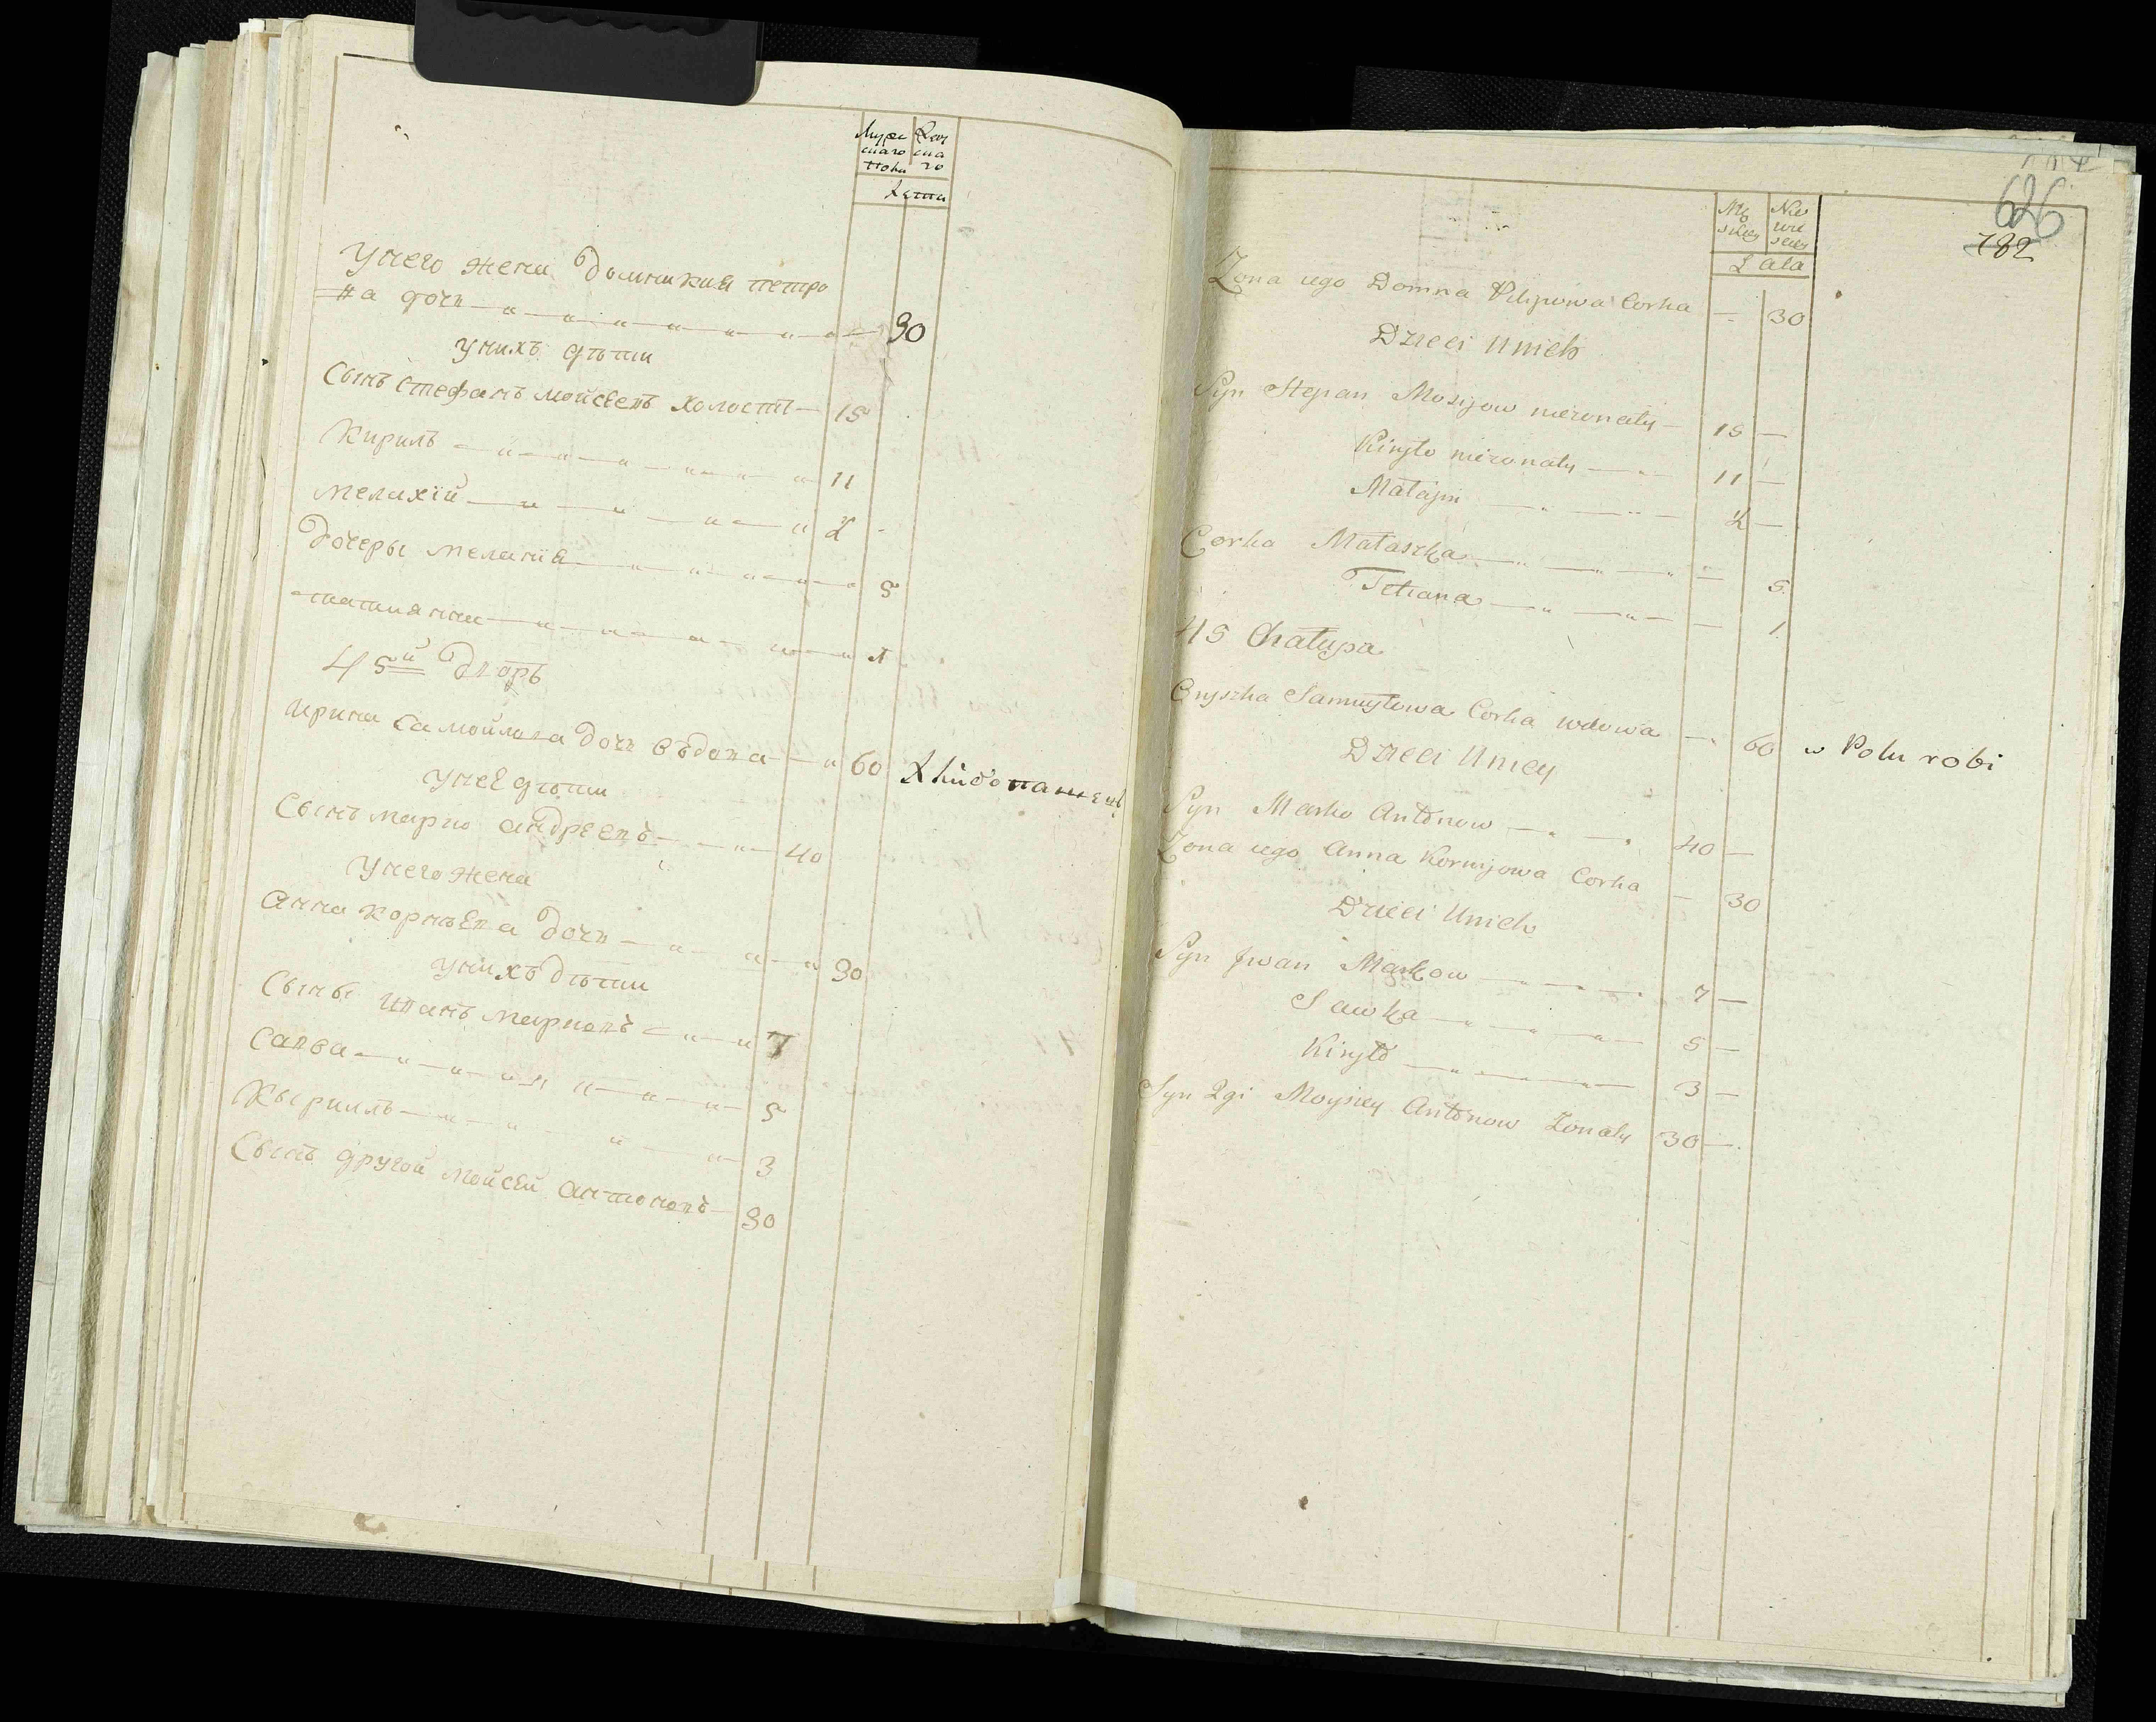 Муже
скаго
полу
Жен
ска
го
Лета
У него жена Домникия петро
ва дочь 30
У нихъ дѣти
Сынъ Стефанъ Мойсеевъ холостъ 15
Кирилъ 11
Мелахій 2
Дочеры Меланія 5
татианна 1
45й Дворъ
Ирина Самойлова дочь въдова 60
У неё дѣти
Сынъ Марко Андреевъ 40
У него жена
Анна Корнѣева дочь 30
У нихъ дѣти
Сыны Иванъ Марковъ 7
Савва 5
Кырилъ 3
Сынъ другой Мойсей Антоновъ 30
626
782
Mę
skiey
Nie
wie
sciey
Lata
Zona iego Domna Pilipowa Corka — 30
Dzieci Unich
Syn Stepan Mosijow niezonaty 15 —
Kiryło niezonaty 11 —
Małajin 2 —
Corka Małaszka — 5
Tetiana — 1
45 Chałupa
Oryszka Samuyłowa Corka wdowa — 60 w Polu robi
Dzieci Uniey
Syn Marko Antonow 40 —
Zona iego Anna Kornijowa Corka — 30
Dzieci Unich
Syn Jwan Markow 7 —
Sawka 5 —
Kiryło 3 —
Syn 2gi Moysiey Antonow Zonaty 30 —